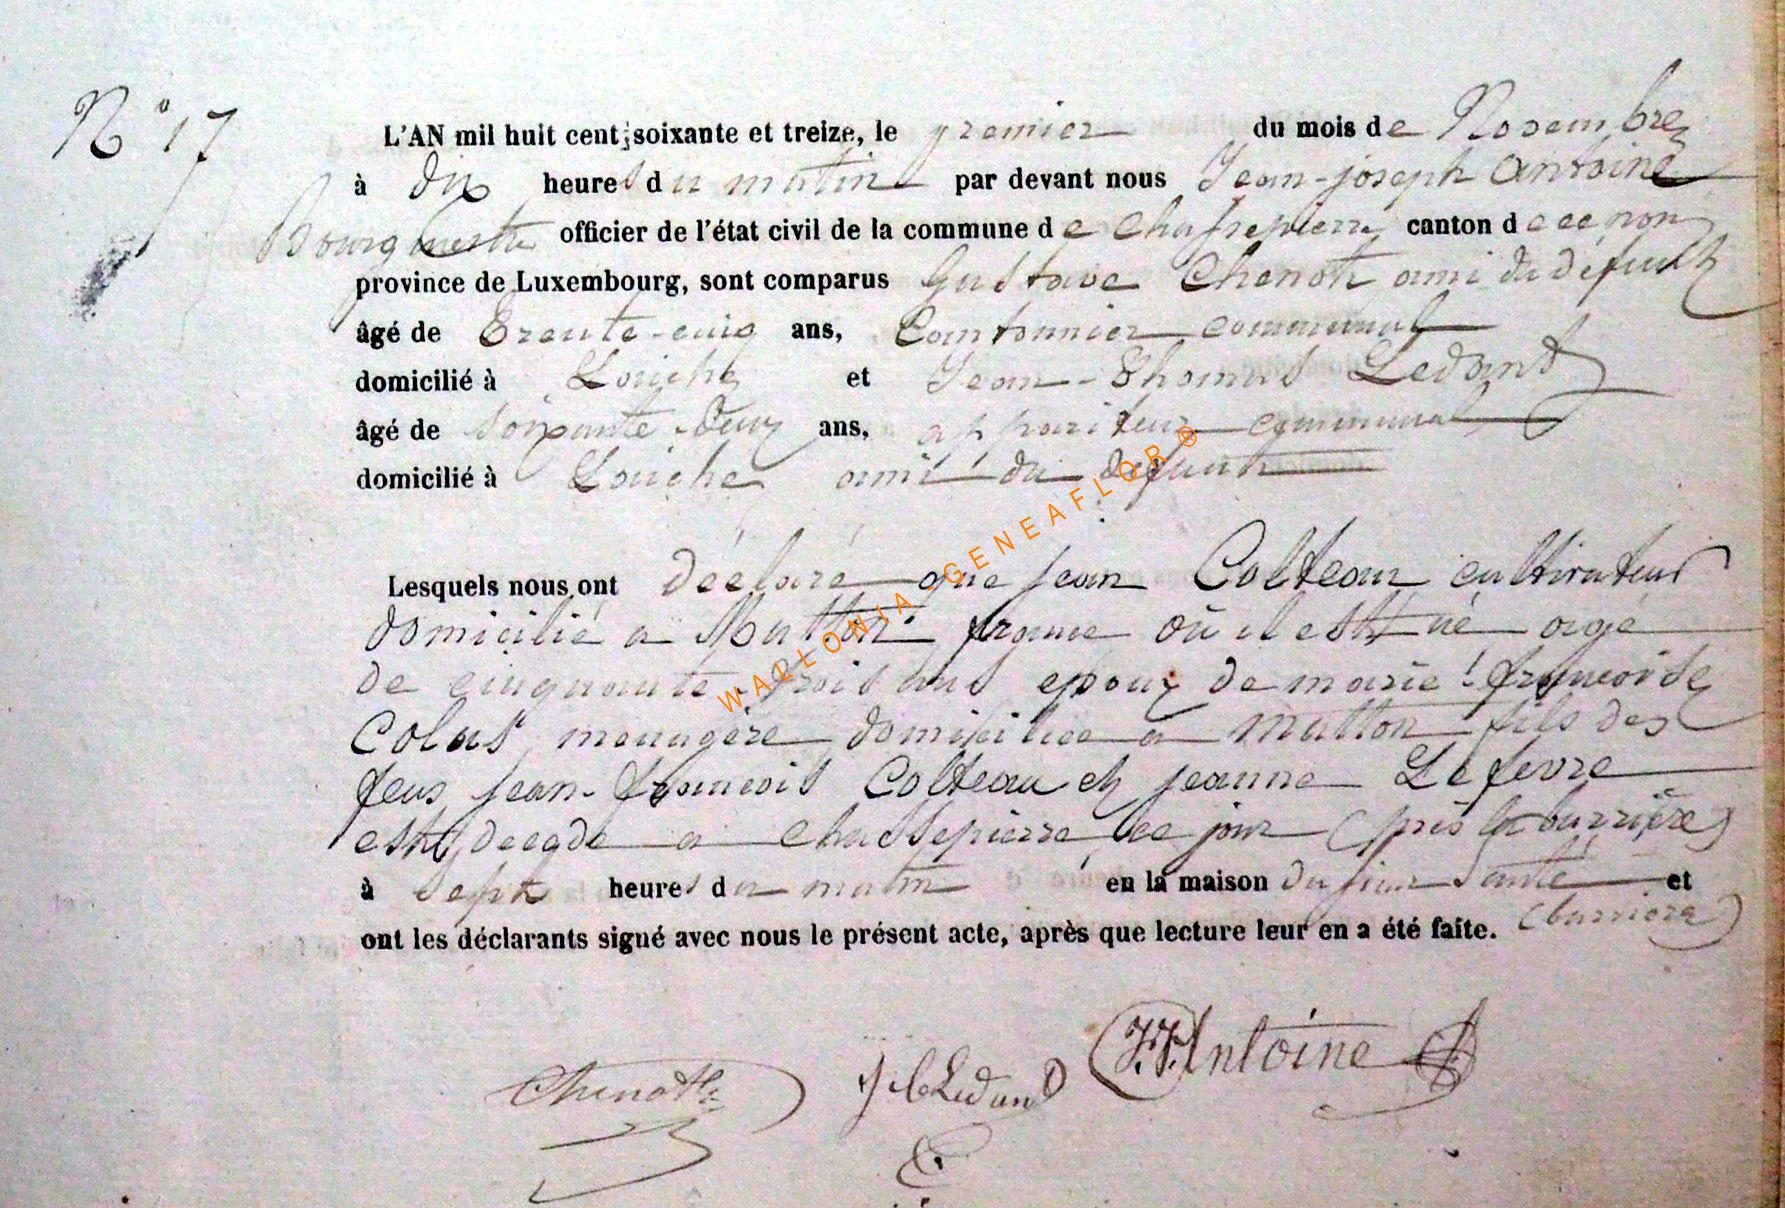 N° 17
L'AN mil huit cent soixante et treize, le premier du mois de Novembre
à dix heures du matin par devant nous Jean-joseph Antoine
Bourgmestre officier de l'état civil de la commune de Chassepierre canton de
province de Luxembourg, sont comparus Gustave Chenot ami du défunt
âgé de Trente-cinq ans, Cantonnier communal
domicilié à Laiche et Jean-Thomas Ledant
âgé de soixante-deux ans, appariteur communal
domicilié à Laiche ami du défunt
Lesquels nous ont déclaré que jean Colteaux cultivateur
domicilié a Matton france où il est né agé
de cinquante-trois ans epoux de marie françoise
Colas menagère domiciliée a Matton fils des
feus jean-françois Colteau et jeanne Lefevre
est decedé a Chassepierre ce jour (près la barrière)
à sept heures du matin en la maison du et
ont les déclarants signé avec nous le présent acte, après que lecture leur en a été faite. (barriere)
Chenot Ledant J.J. Antoine
WALLONIA-GENEAFLOR®